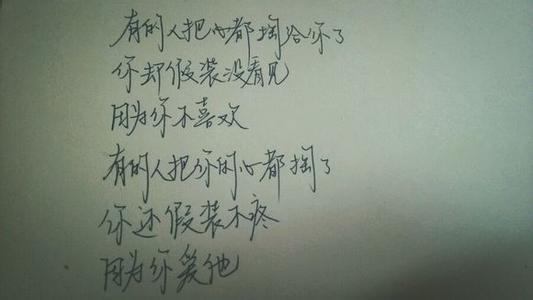 有的人把心都掏给你了
你却假装没看见
因为你不喜欢
有的人把你的心都掏了
你还假装不疼
因为你爱他